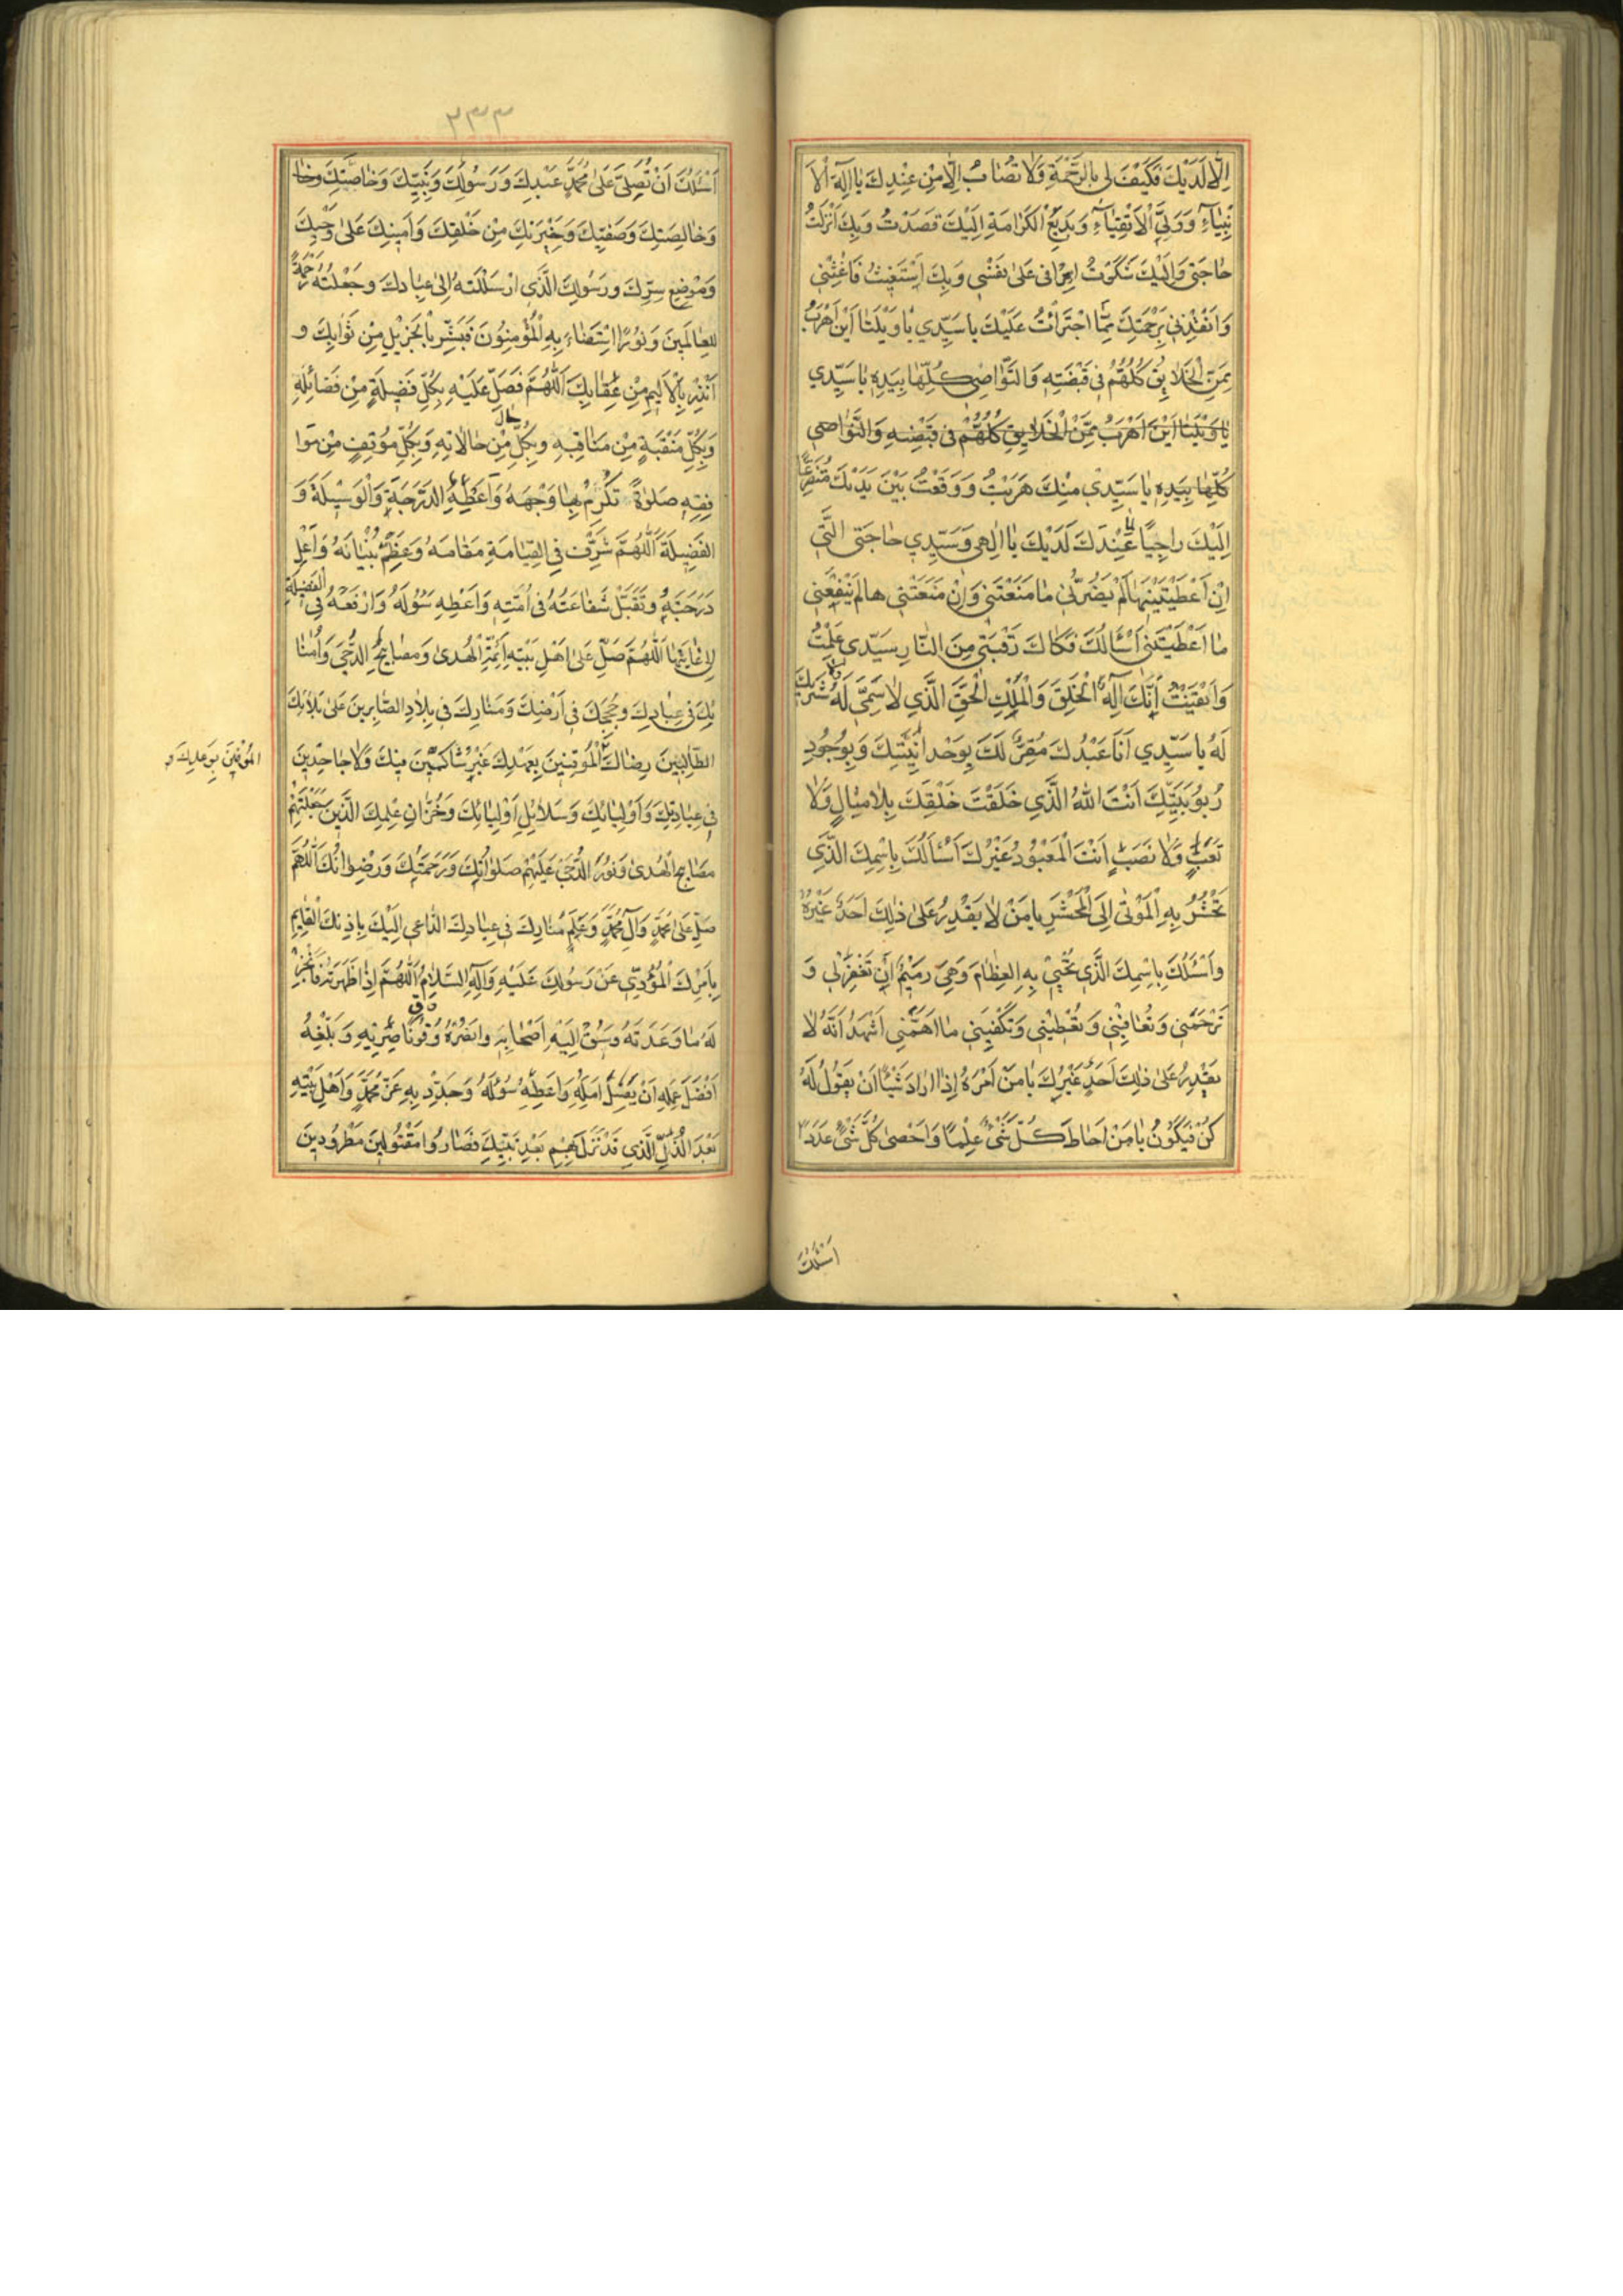 اِلّا لَدَيْكَ فَكَيْفَ لي بِالرَّحْمَةِ وَلا تُصابُ اِلّا مِنْ عِنْدِكَ يا اِلٰهَ الْاَ
نْبِياءِ وَوَلِيَّ الْاَتْقِياءِ وَبَديعَ الْكَرامَةِ اِلَيْكَ قَصَدْتُ وَبِكَ اَنْزَلْتُ
حاجَتي وَاِلَيْكَ شَكَوْتُ اِسْرافي عَلىٰ نَفْسي وَبِكَ اَسْتَغيثُ فَاَغِثْني
وَاَنْقِذْني بِرَحْمَتِكَ مِمَّا اجْتَرَأْتُ عَلَيْكَ يا سَيِّدي يا وَيْلَتا اَيْنَ اَهْرَبُ
مِمَّنِ الْخَلايِقُ كُلُّهُمْ في قَبْضَتِهِ وَالنَّواصي كُلُّها بِيَدِهِ يا سَيِّدي
يا وَيْلَتا اَيْنَ اَهْرَبُ مِمَّنْ الْخَلايِقُ كُلُّهُمْ في قَبْضَتِهِ وَالنَّواصي
كُلُّها بِيَدِهِ يا سَيِّدي مِنْكَ هَرَبْتُ وَوَقَعْتُ بَيْنَ يَدَيْكَ مُتَضَرِّعاً
اِلَيْكَ راجِيًا عِنْدَكَ لَدَيْكَ يا اِلٰهي وَسَيِّدي حاجَتي الَّتي
اِنْ اَعْطَيْتَنيها لَمْ يَضُرَّني ما مَنَعْتَني وَاِنْ مَنَعْتَني‌ها لَمْ يَنْفَعْني
ما اَعْطَيْتَني اَسْأَلُكَ فَكاكَ رَقَبَتي مِنَ النّارِ سَيِّدي عَلِمْتُ
وَاَيْقَنْتُ اَنَّكَ اِلٰهُ الْخَلْقِ وَالْمَلِكُ الْحَقُّ الَّذي لا سَمِيَّ لَهُ وَلا شَريكَ
لَهُ يا سَيِّدي اَنَا عَبْدُكَ مُقِرٌّ لَكَ بِوَحْدانِيَّتِكَ وَبِوُجُودِ
رُبُوبِيَّتِكَ اَنْتَ اللهُ الَّذي خَلَقْتَ خَلْقَكَ بِلا مِثالٍ وَلا
تَعَبٍ وَلا نَصَبٍ اَنْتَ الْمَعْبُودُ غَيْرُكَ اَسْأَلُكَ بِاسْمِكَ الَّذي
تَحْشُرُ بِهِ الْمَوْتىٰ اِلَى الْمَحْشَرِ يا مَنْ لا يَقْدِرُ عَلىٰ ذٰلِكَ اَحَدٌ غَيْرُهُ
وَاَسْئَلُكَ بِاسْمِكَ الَّذي تُحْيي بِهِ الْعِظامَ وَهِيَ رَميمٌ اَنْ تَغْفِرَ لي وَ
تَرْحَمَني وَتُعافِيَني وَتُعْطِيَني وَتَكْفِيَني ما اَهَمَّني اَشْهَدُ اَنَّهُ لا
يَقْدِرُ عَلىٰ ذٰلِكَ اَحَدٌ غَيْرُكَ يا مَنْ اَمْرُهُ اِذا اَرادَ شَيْئًا اَنْ يَقُولَ لَهُ
كُنْ فَيَكُونُ يا مَنْ اَحاطَ كُلَّ شَيْءٍ عِلْمًا وَاَحْصىٰ كُلَّ شَيْءٍ عَدَدًا
اَسْئَلُكَ
٢٣٣
اَسْئَلُكَ اَنْ تُصَلِّيَ عَلىٰ مُحَمَّدٍ عَبْدِكَ وَرَسُولِكَ وَنَبِيِّكَ وَخاصَّتِكَ وخا
وَخالِصَتِكَ وَصَفِيِّكَ وَخِيَرَتِكَ مِنْ خَلْقِكَ وَاَمينِكَ عَلىٰ وَحْيِكَ
وَمَوْضِعِ سِرِّكَ وَرَسُولِكَ الَّذي اَرْسَلْتَهُ اِلىٰ عِبادِكَ وَجَعَلْتَهُ رَحْمَةً
لِلْعالَمينَ وَنُورًا اسْتَضاءَ بِهِ الْمُؤْمِنُونَ فَبَشَّرَ بِالْجَزيلِ مِنْ ثَوابِكَ و
اَنْذَرَ بِالْاَليمِ مِنْ عِقابِكَ اَللّٰهُمَّ فَصَلِّ عَلَيْهِ بِكُلِّ فَضيلَةٍ مِنْ فَضائِلِهِ
وَبِكُلِّ مَنْقَبَةٍ مِنْ مَناقِبِهِ وَبِكُلِّ حالٍ مِنْ حالاتِهِ وَبِكُلِّ مَوْقِفٍ مِنْ مَوا
قِفِهِ صَلوٰةً تُكْرِمُ بِها وَجْهَهُ وَاَعْطِهِ الدَّرَجَةَ وَالْوَسيلَةَ وَ
الْفَضيلَةَ اَللّٰهُمَّ شَرِّفْ فِي الْقِيامَةِ مَقامَهُ وَعَظِّمْ بُنْيانَهُ وَاَعْلِ
دَرَجَتَهُ وَتَقَبَّلْ شَفاعَتَهُ في اُمَّتِهِ وَاَعْطِهِ سُؤْلَهُ وَارْفَعْهُ فِي الْفَضيلَةِ
اِلىٰ غايَتِها اَللّٰهُمَّ صَلِّ عَلىٰ اَهْلِ بَيْتِهِ اَئِمَّةِ الْهُدىٰ وَمَصابيحِ الدُّجىٰ وَاُمَنا
ئِكَ في عِبادِكَ وَحُجَجِكَ في اَرْضِكَ وَمَنارِكَ في بِلادِكَ الصّابِرينَ عَلىٰ بَلائِكَ
الطّالِبينَ رِضاكَ الْمُوقِنينَ بِعَهْدِكَ غَيْرَ شاكّينَ فيكَ وَلا جاحِدينَ
الْمُوفينَ بِوَعْدِكَ وَ
في عِبادَتِكَ وَاَوْلِيائِكَ وَسَلائِلِ اَوْلِيائِكَ وَخُزّانِ عِلْمِكَ الَّذينَ جَعَلْتَهُمْ
مَصابيحَ الْهُدىٰ وَنُورَ الدُّجىٰ عَلَيْهِمْ صَلَواتُكَ وَرَحْمَتُكَ وَرِضْوانُكَ اَللّٰهُمَّ
صَلِّ عَلىٰ مُحَمَّدٍ وَآلِ مُحَمَّدٍ وَعَلَمِ مَنارِكَ في عِبادِكَ الدّاعي اِلَيْكَ بِاِذْنِكَ الْقائِمِ
بِاَمْرِكَ الْمُؤَدّي عَنْ رَسُولِكَ عَلَيْهِ وَآلِهِ السَّلامُ اَللّٰهُمَّ اِذا اَظْهَرْتَهُ فَاَنْجِزْ
لَهُ ما وَعَدْتَهُ وَسُقْ اِلَيْهِ اَصْحابَهُ وَانْصُرْهُ وَقَوِّ ناصِريهِ وَبَلِّغْهُ
اَفْضَلَ اَمَلِهِ وَاَعْطِهِ سُؤْلَهُ وَجَدِّدْ بِهِ عَنْ مُحَمَّدٍ وَاَهْلِ بَيْتِهِ
بَعْدَ الذُّلِّ الَّذي قَدْ نَزَلَ بِهِمْ بَعْدَ نَبِيِّكَ فَصارُوا مَقْتُولينَ مَطْرُودينَ